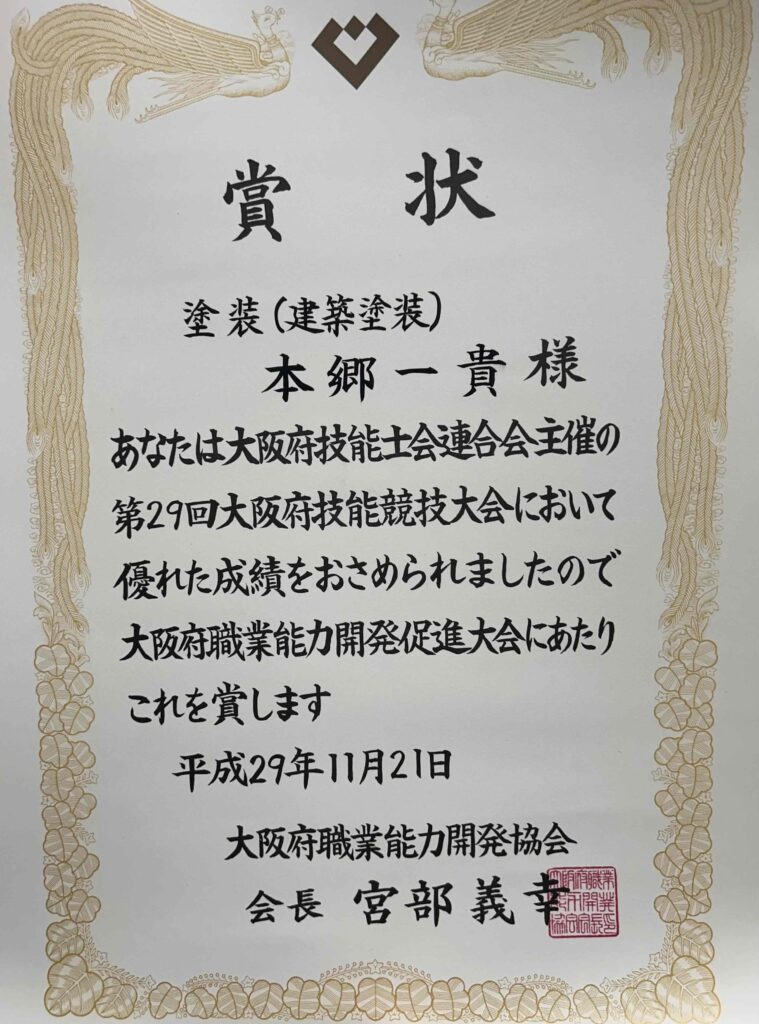 賞状
塗装(建築塗装)
本郷一貴様
あなたは大阪府技能士会連合会主催の
第29回大阪府技能競技大会において
優れた成績をおさめられましたので
大阪府職業能力開発促進大会にあたり
これを賞します
平成29年11月21日
大阪府職業能力開発協会
会長 宮部義幸